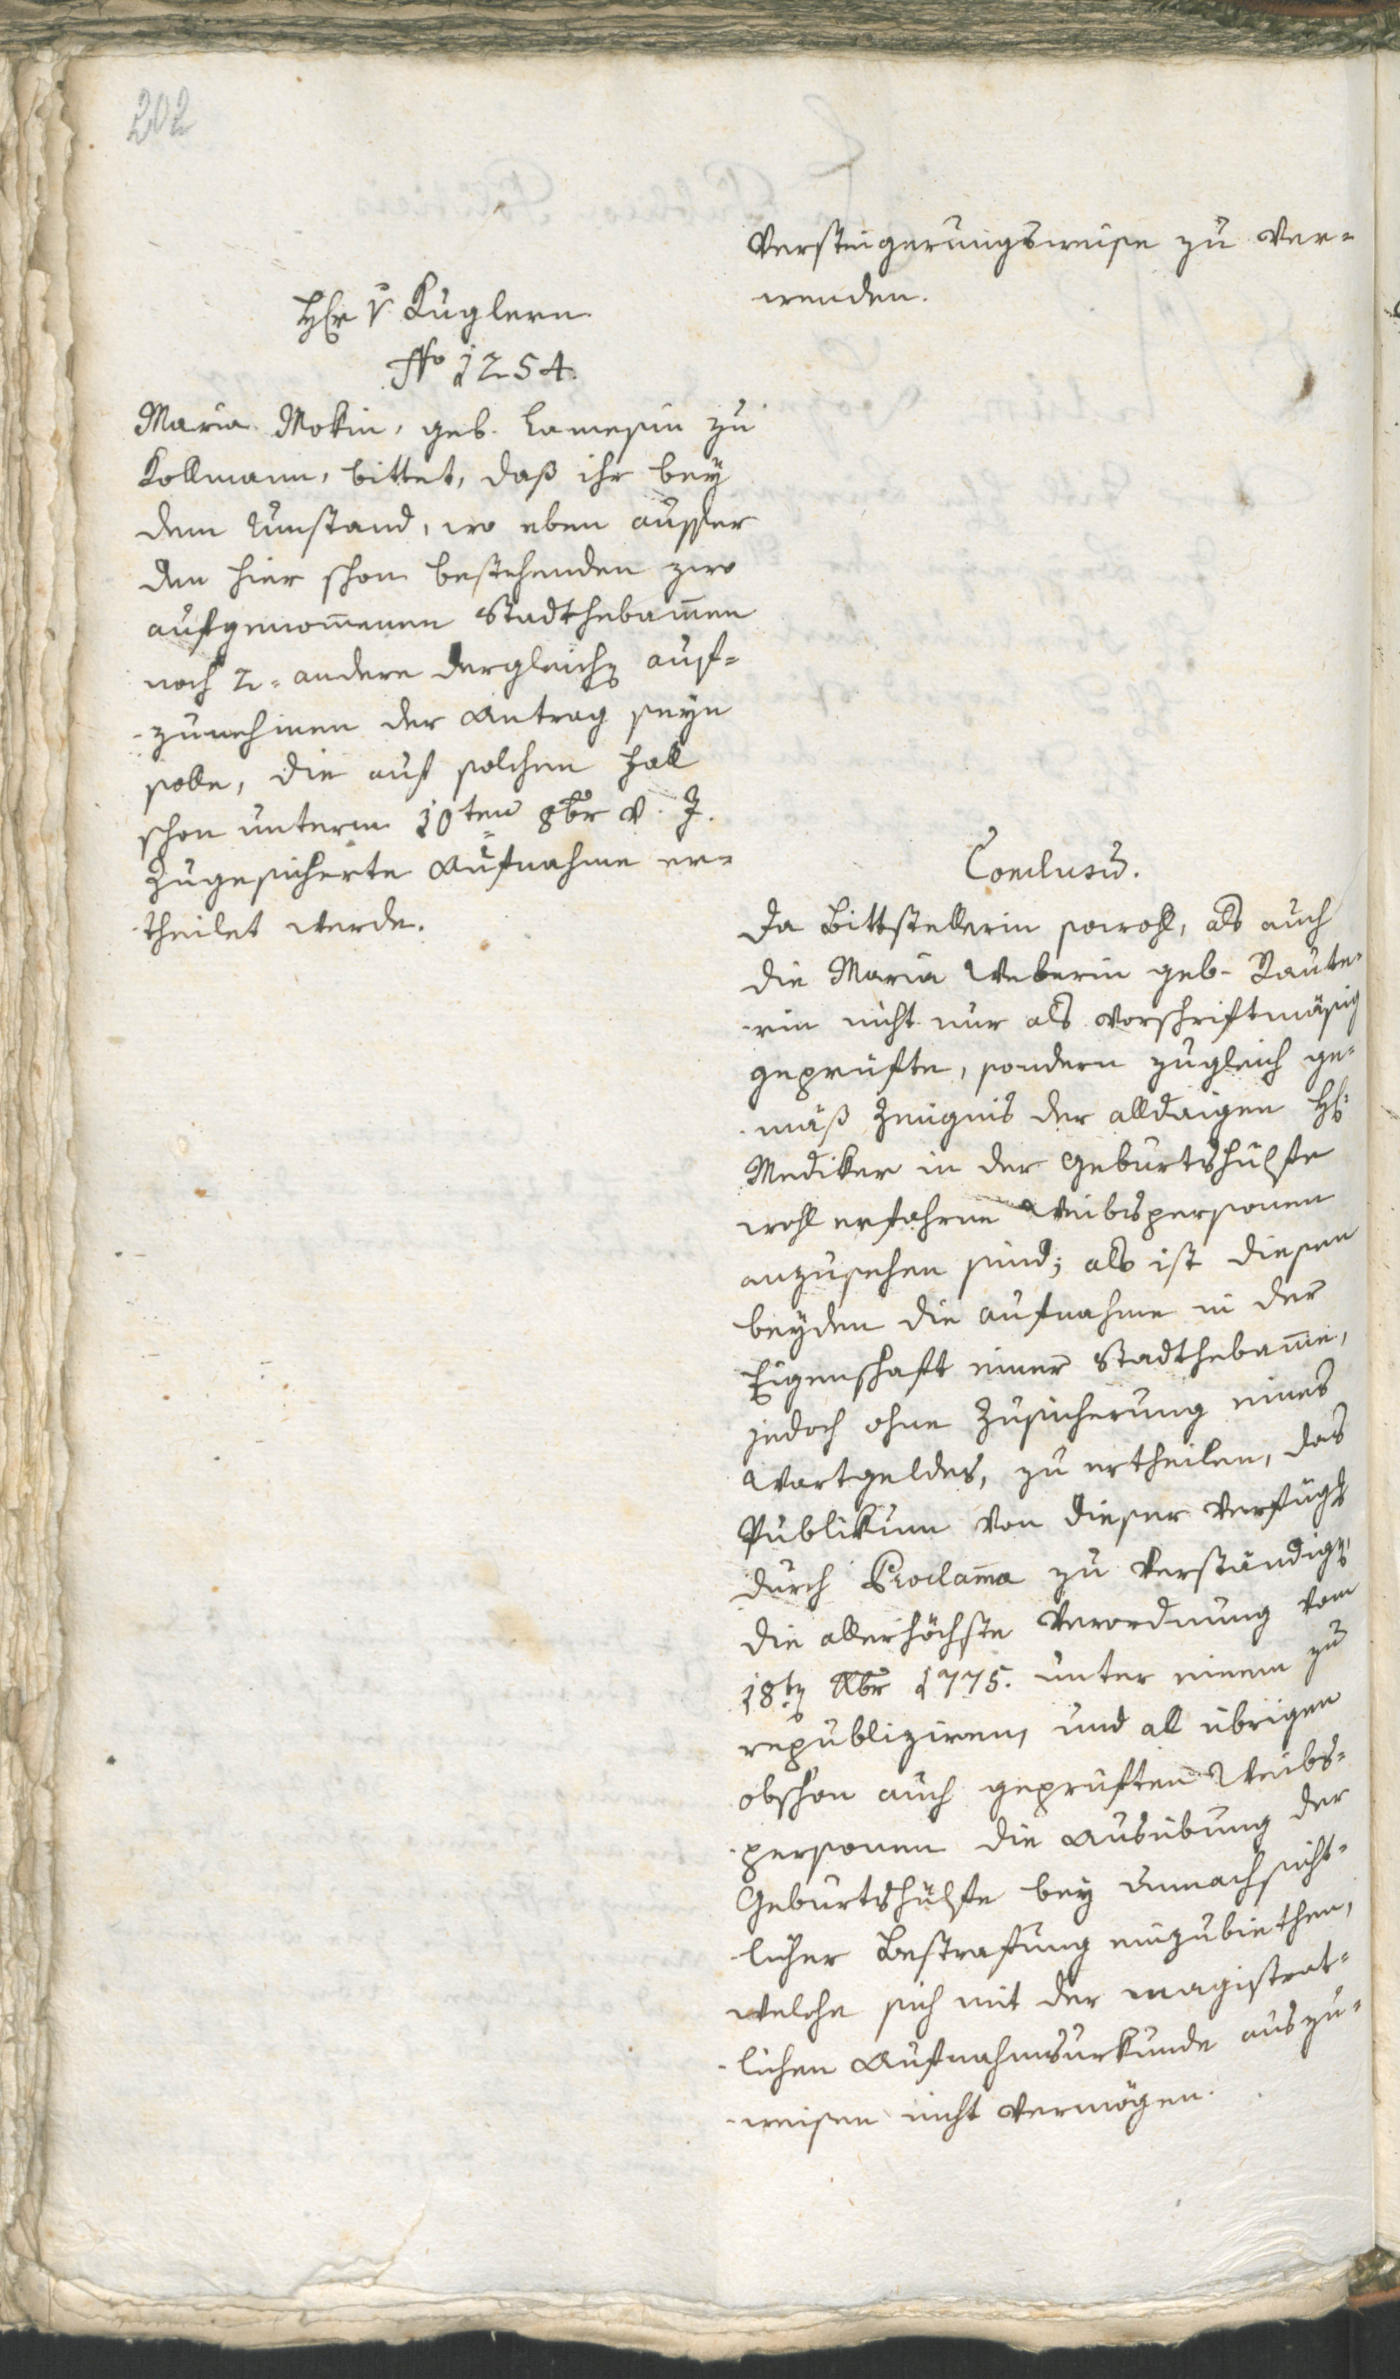 202
Versteigerungsweise zu ver-
wenden.
Hr v Kuglern.
No 1254.
Maria Mokin, geb. Lamesin zu
Kollmann, bittet, daß ihr bey
dem Umstand, wo eben ausser
den hier schon bestehenden zwo
aufgenom̅enen Stadthebam̅en
noch 2. andere dergleichen auf-
zunehmen der Antrag seyn
solle, die auf solchen Fall
schon unterm 10ten 8br v. J.
zugesicherte Aufnahme er-
theilet werde.
Conclusu̅.
Da Bittstellerin sowohl, als auch
die Maria Weberin geb. Raute-
rin nicht nur als vorschriftmäsig
geprüfte, sondern zugleich ge-
mäß Zeugnis der alldaigen H:
Mediker in der Geburtshülfte
wohl erfahrne Weibspersonen
anzusehen sind; als ist diesen
beyden die Aufnahme in der
Eigenschaft einer Stadthebam̅e,
jedoch ohne Zusicherung eines
Wartgeldes, zu ertheilen, das
Publikum von dieser Verfügg
durch Proclam̅a zu verständigen,
die allerhöchste Verordnung vom
18ten Xbr 1775. unter einem zu
republiziren, und all übrigen
obschon auch geprüften Weibs-
personen die Ausübung der
Geburtshülfte bey unnachsicht-
licher Bestrafung einzubiethen,
welche sich mit der magistrat-
lichen Aufnahmsurkunde auszu-
weisen nicht vermögen.